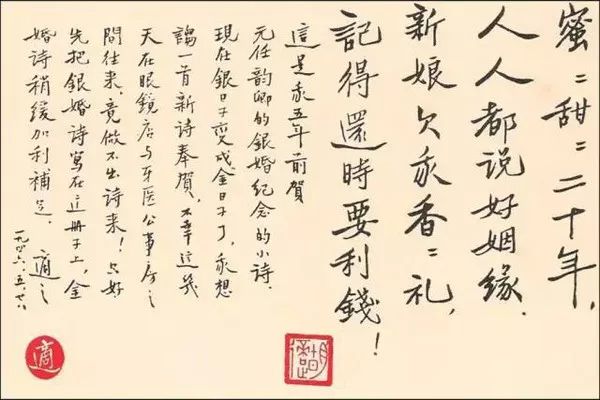 蜜=甜=二十年,
人人都说好姻缘.
新娘欠我香=礼,
記得還時要利錢!
這是我五年前賀
元任韵卿的銀婚纪念的小诗.
現在銀日子变成金日子了,我想
謅一首新诗奉賀,不幸这幾
天在眼鏡店与牙医公事房之
間往来,竟做不出诗来!只好
先把銀婚诗寫在这册子上,金
婚诗稍缓加利補足. 適之
一九四六.五.廿八
胡適
適